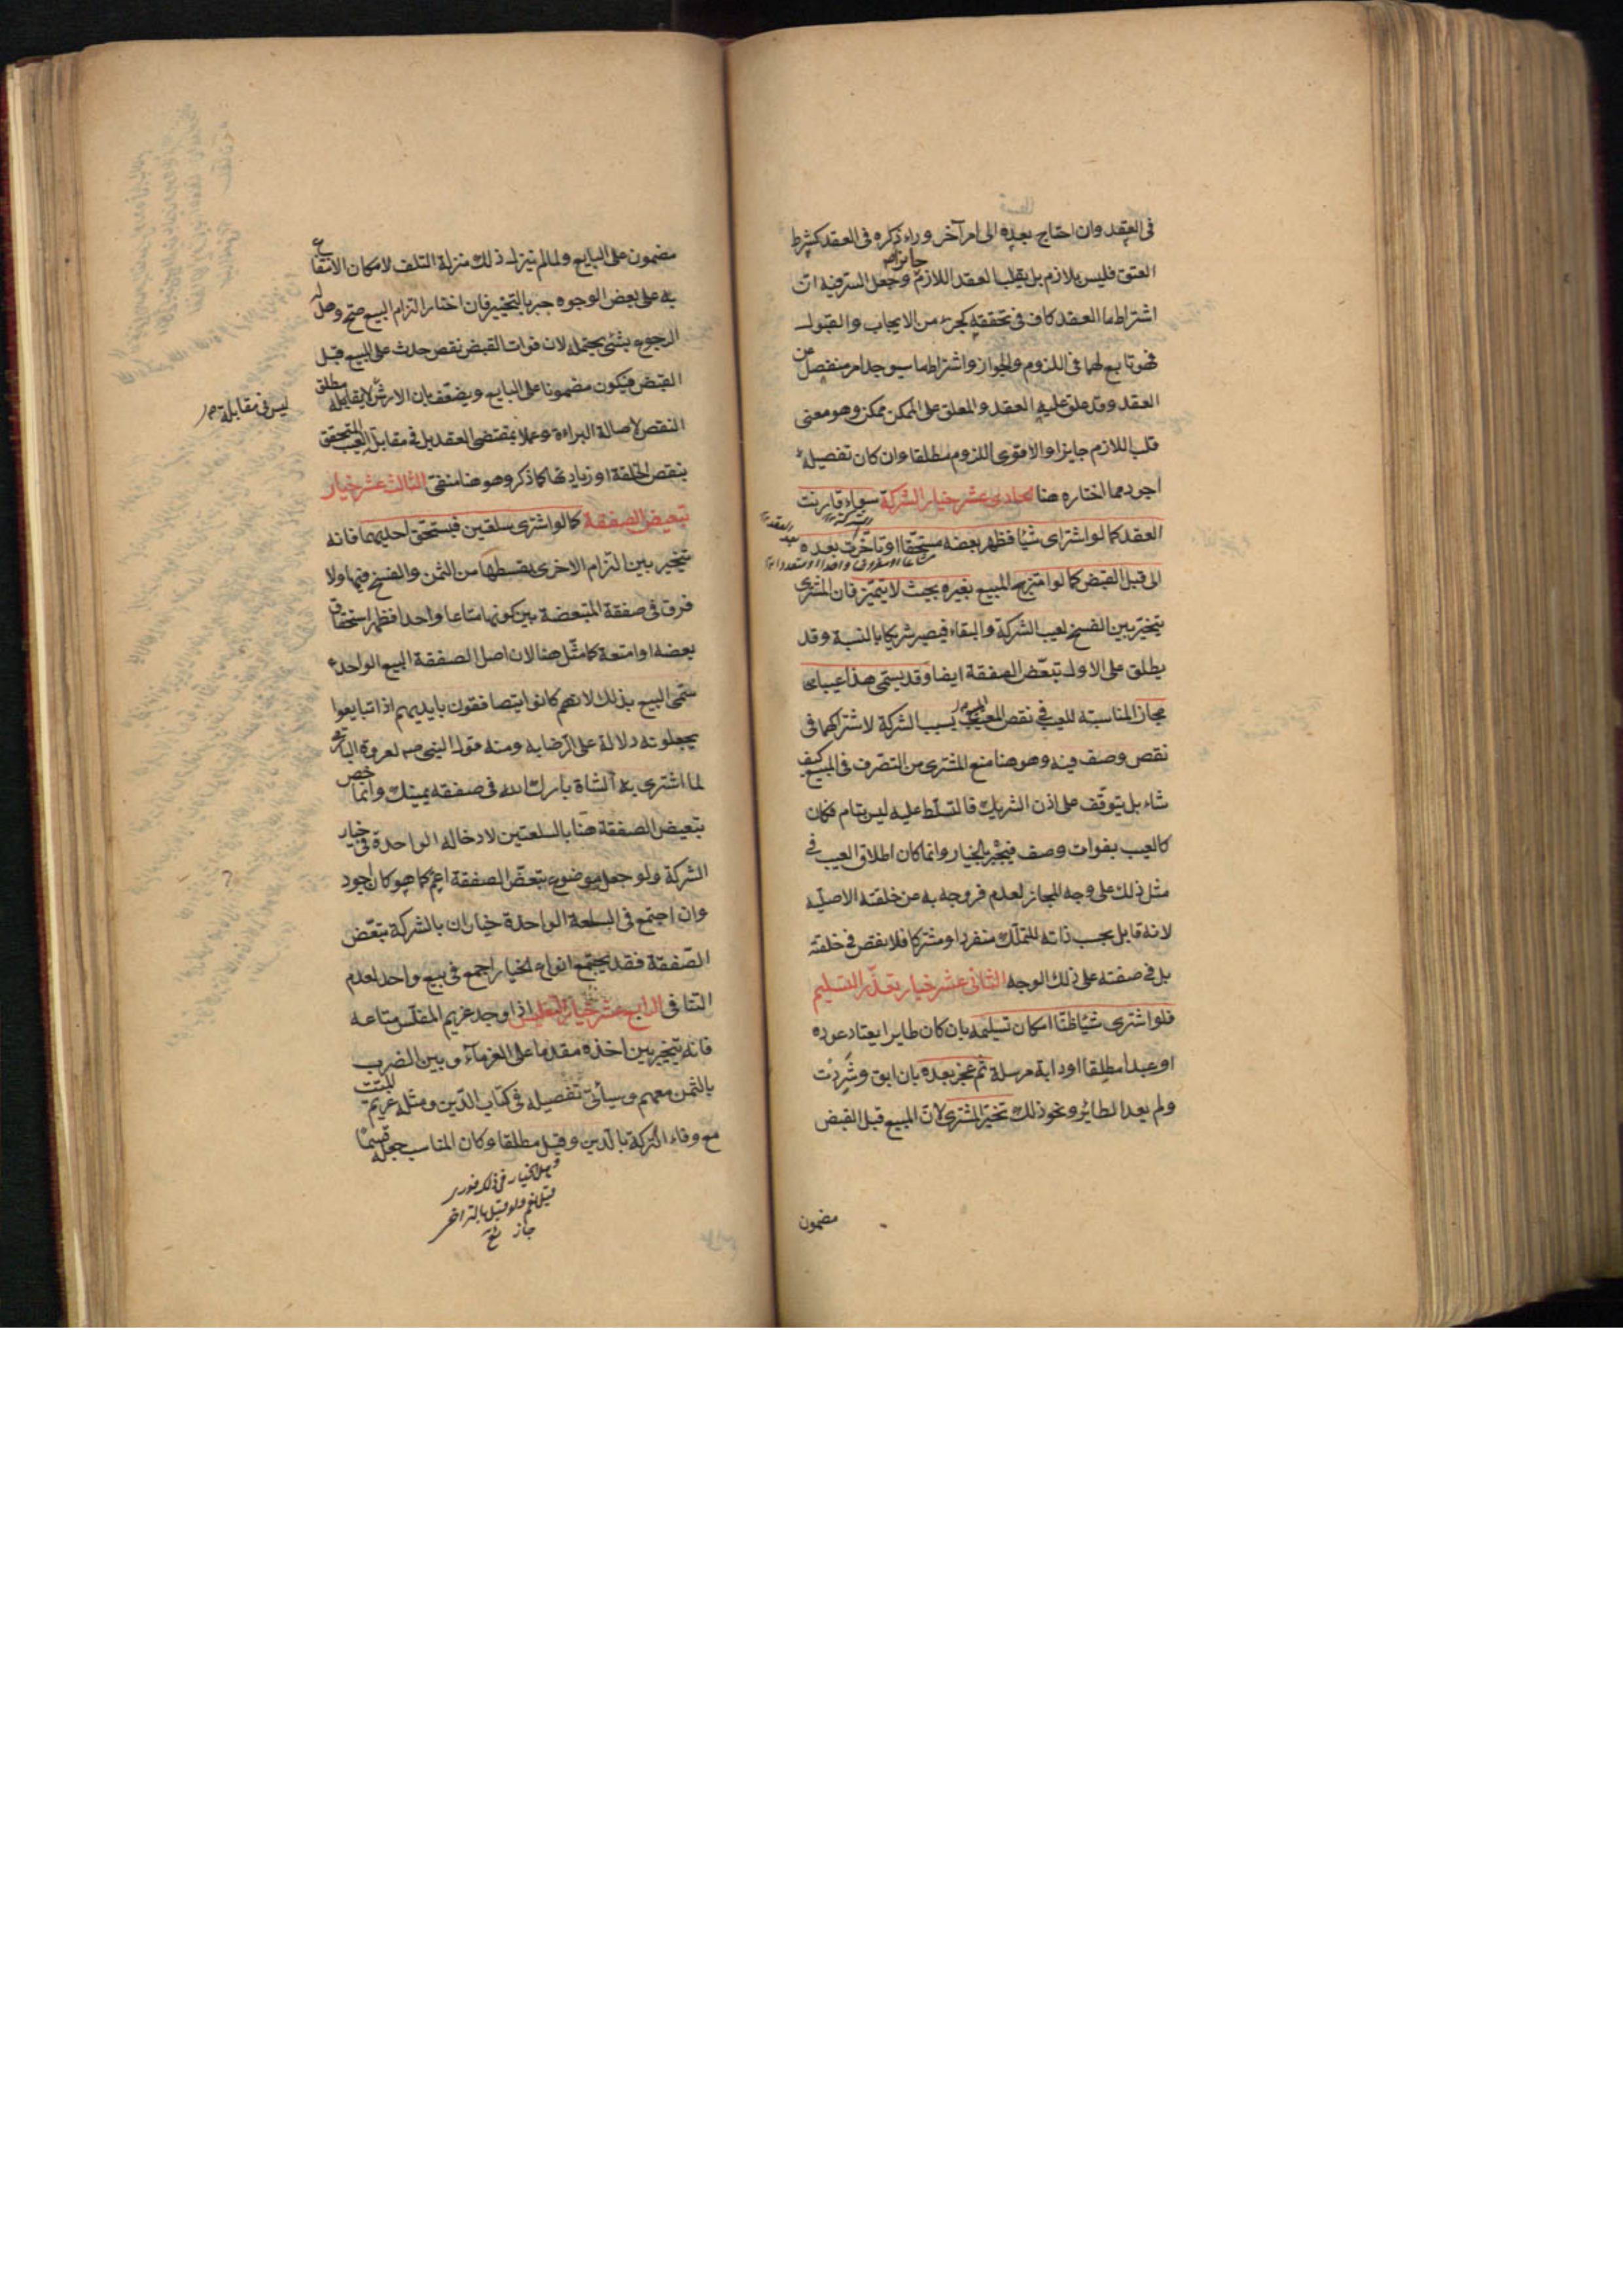 فى العقد وان احتاج بعده الى امر آخر وراء ذكره فى العقد كشرط
العتق فليس بلازم بل يقلب العقد اللازم جايزا وجعل السر فيه ان
اشتراط ما العقد كاف فى تحققه كجزء من الايجاب والقبول
فهو تابع لهما فى اللزوم والجواز واشتراط ما سيوجد امر منفصل عن
العقد وقد علق عليه العقد والمعلق على الممكن ممكن وهو معنى
قلب اللازم جايزا والاقوى اللزوم مطلقا وان كان تفصيله
اجود مما اختاره هنا الحادى عشر خيار الشركة سواء قارنت
العقد كما لو اشترى شيئا فظهر بعضه مستحقا او تأخرت بعده
الى قبل القبض كما لو امتزج المبيع بغيره بحيث لا يتميز فان المشترى
يتخير بين الفسخ لعيب الشركة والبقاء فيصير شريكا بالنسبة وقد
يطلق على الاول تبعّض الصفقة ايضا وقد يسمى هذا عيبا
مجازا لمناسبته للعيب فى نقص المبيع بسبب الشركة لاشتراكهما فى
نقص وصف فيه وهو هنا منع المشترى من التصرف فى المبيع كيف
شاء بل يتوقف على اذن الشريك فالتسلط عليه ليس بتام فكان
كالعيب بفوات وصف فيجبر بالخيار وانما كان اطلاق العيب فى
مثل ذلك على وجه المجاز لعدم خروجه به عن خلقته الاصلية
لانه قابل بحسب ذاته للتملك منفردا ومشتركا فلا نقص فى خلقته
بل فى صفته على ذلك الوجه الثانى عشر خيار تعذّر التسليم
فلو اشترى شيئا ظنا امكان تسليمه بان كان طايرا يعتاد عوده
او عبدا مطلقا او دابة مرسلة ثم عجز بعده بان ابق وشردت
ولم يعد الطائر ونحو ذلك تخيّر المشترى لان المبيع قبل القبض
مضمون
مضمون على البايع ولما لم ينزل ذلك منزلة التلف لامكان الانتفاع
به على بعض الوجوه جبر بالتخيير فان اختار التزام البيع صح وهل له
الرجوع بشئ يحتمله لان فوات القبض نقص حدث على المبيع قبل
القبض فيكون مضمونا على البايع ويضعف بان الارش ليس فى مقابلة مطلق
النقص لاصالة البراءة وعملا بمقتضى العقد بل فى مقابلة العيب المتحقق
بنقص الخلقة او زيادتها كما ذكر وهو هنا منفى الثالث عشر خيار
تبعيض الصفقة كما لو اشترى سلعتين فيستحق احديهما فانه
يتخير بين التزام الاخرى بقسطها من الثمن والفسخ فيها ولا
فرق فى صفقة المتبعضة بين كونها متاعا واحدا فظهر استحقاق
بعضه او امتعة كما مثل هنا لان اصل الصفقة البيع الواحد
سمى البيع بذلك لانهم كانوا يتصافقون بايديهم اذا تبايعوا
يجعلونه دلالة على الرضا به ومنه قول النبى ص لعروة البارقى
لما اشترى الشاة بارك الله فى صفقة يمينك وانما خص
تبعيض الصفقة هنا بالسلعتين لادخاله الواحدة فى خيار
الشركة ولو جعل موضوع تبعّض الصفقة اعم كما هو كان اجود
وان اجتمع فى السلعة الواحدة خياران بالشركة تبعّض
الصفقة فقد يجتمع انواع الخيار اجمع فى بيع واحد لعدم
التنافى الرابع عشر خيار التفليس اذا وجد غريم المفلس متاعه
فانه يتخير بين اخذه مقدما على الغرماء وبين الضرب
بالثمن معهم وسيأتى تفصيله فى كتاب الدّين ومثله غريم الميّت
مع وفاء التركة بالدين وقيل مطلقا وكان المناسب جعله قسما
وهل الخيار فى ذلك فورى
قيل نعم ولو قيل بالتراخى
جاز
ليس فى مقابلة